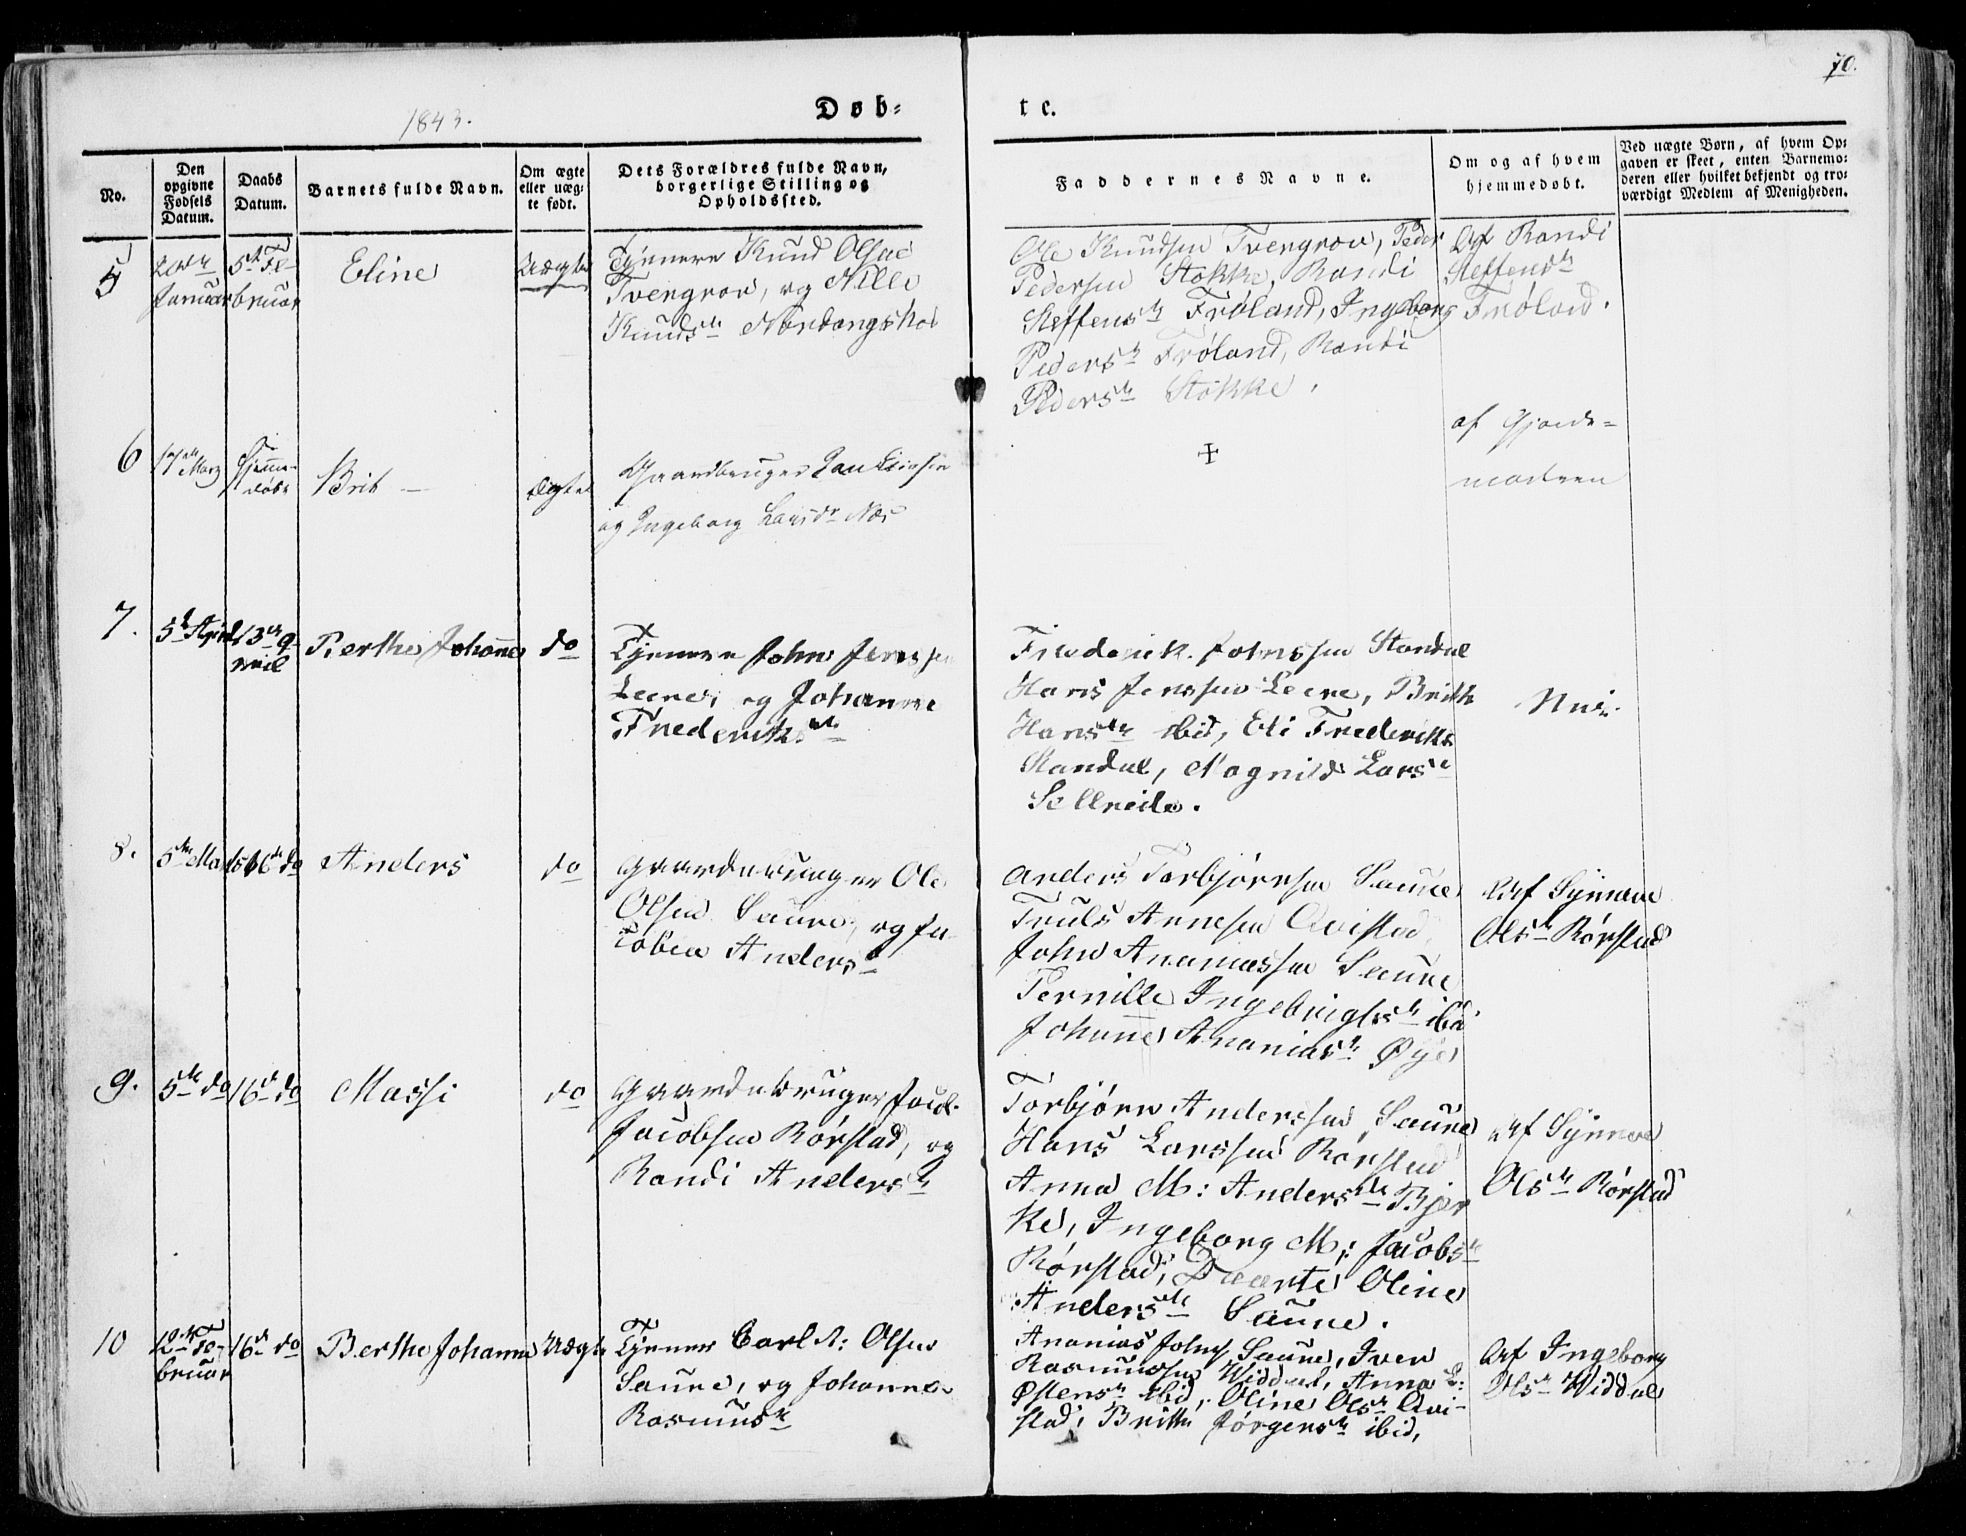 70.
1843.
Døb-
te.
No.
Den opgivne Fødsels Datum.
Daabs Datum.
Barnets fulde Navn.
Om ægte eller uæg-te født.
Dets Forældres fulde Navn, borgerlige Stilling og Opholdssted.
Faddernes Navne.
Om og af hvem hjemmedøbt.
Ved uægte Børn, af hvem Op-gaven er skeet, enten Barnemo-deren eller hvilket bekjendt og tro-værdigt Medlem af Menigheden.
5
Januar
5te Fe-
bruar
Eline
Uægte
Tjenere Knud Olsen
Tvergrov, og Nille
Knudsdr
Ole Knudsen Tvergrov, Peder
Pedersen Stokke, Randi
Steffensdr Frøland, Ingeborg
Pedersdr Frøland, Randi
Pedersdr Stokke.
Af Randi
Steffensdr
Frøland.
6
17de Marz
Hjemme-
døbt
Brit
Ægte
Gaardbruger
og Ingeborg Larsdr Næs
+
af Gjorde-
moderen
7.
5te April
13de A-
pril
Berthe Johanne
do
Tjenere John Jenssen
Leere, og Johanne
Frederiksdr
Frederik Johnssen Standal
Hans Jenssen Leere, Brithe
Hansdr ibid, Eli Frederiks
Standal, Magnild Larsdr
Sellreite.
Nei.
8.
5te Marts
16de do
Anders
do
Gaardebruger Ole
Olsen Saure, og Ja-
cobea Andersdr
Anders Torbjørnsen Saure
Truls Arnesen Qvistad
John Ananiassen Saure
Pernille Ingebrigtsdr ibid
Johanne Ananiasdr Øye
Af Synnøve
Olsdr Rørstad
9.
5te do
16de do
Massi
do
Gaardebruger Jacob
Jacobsen Rørstad, og
Randi Andersdr
Torbjørn Anderssen Saure
Hans Larssen Rørstad
Anna M: Andersdr Bjer
ke, Ingeborg M: Jacobsdr
Rørstad, Daarte Oline
Andersdr Saure.
Af Synnøve
Olsdr Rørstad
10
12te Fe-
bruar
16de do
Berthe Johanne
Uægte
Tjener Carl A: Olsen
Saure, og Johanne
Rasmusdr
Ananias Johns. Saure, Iver
Rasmussen Widdal, Anna L:
Østensdr ibid, Oline Olsdr Qvi-
stad, Brithe Jørgensdr ibid,
Af Ingeborg
Olsdr Widdal